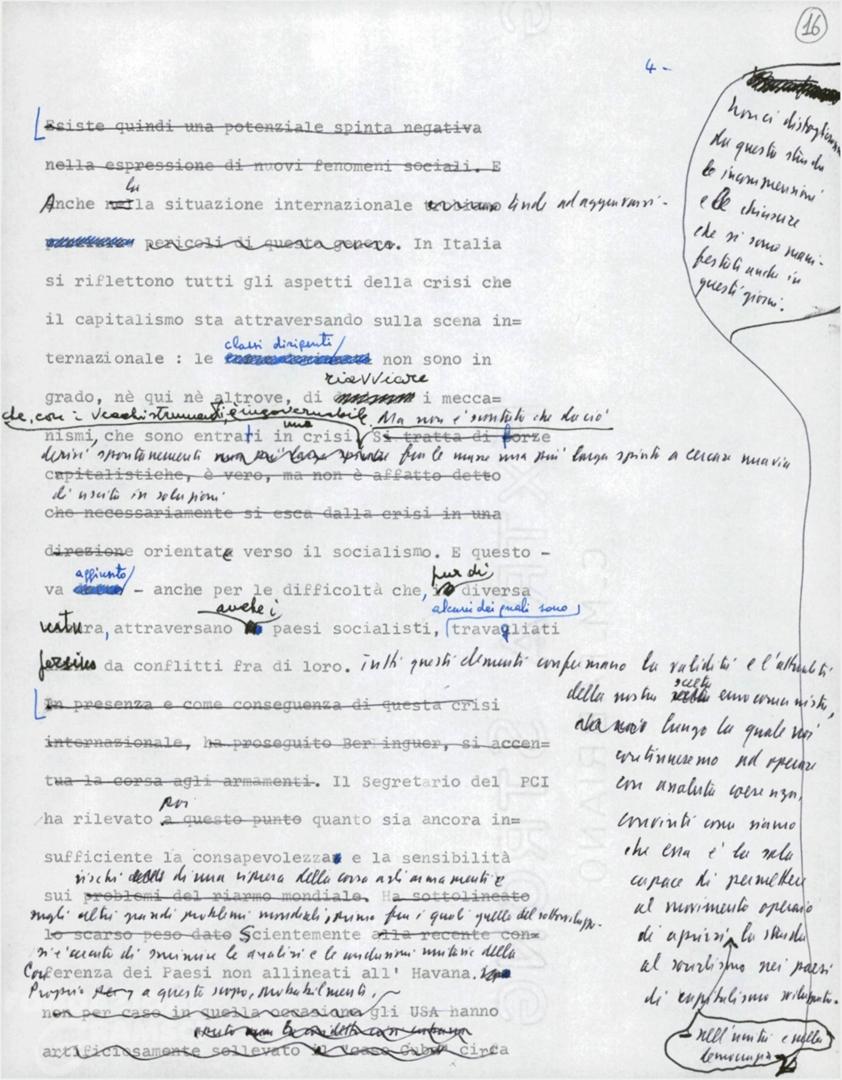 16
4 -
Esiste quindi una potenziale spinta negativa
nella espressione di nuovi fenomeni sociali. E
la
Anche nella situazione internazionale tende ad aggravarsi.
pericoli di questo genere. In Italia
si riflettono tutti gli aspetti della crisi che
il capitalismo sta attraversando sulla scena in=
classi dirigenti
ternazionale : le non sono in
riavviare
grado, nè qui nè altrove, di i mecca=
che, con i vecchi strumenti, è ingovernabile. Ma non è scontato che da ciò
una
nismi, che sono entrati in crisi. Si tratta di forze
derivi spontaneamente fra le masse una più larga spinta a cercare una via
capitalistiche, è vero, ma non è affatto detto
di uscita in soluzioni
che necessariamente si esca dalla crisi in una
direzione orientate verso il socialismo. E questo -
aggiunto pur di
va - anche per le difficoltà che, in diversa
anche i alcuni dei quali sono
natura, attraversano paesi socialisti, travagliati
persino da conflitti fra di loro. Tutti questi elementi confermano la validità e l'attualità
scelta
della nostra eurocomunista,
lungo la quale noi
continueremo ad operare
con assoluta coerenza,
convinti come siamo
che essa è la sola
capace di permettere
al movimento operaio
di aprirsi la strada
al socialismo nei paesi
di capitalismo sviluppato.
nell'unità e nella
democrazia
In presenza e come conseguenza di questa crisi
internazionale, ha proseguito Berlinguer, si accen=
tua la corsa agli armamenti. Il Segretario del PCI
poi
ha rilevato a questo punto quanto sia ancora in=
sufficiente la consapevolezza e la sensibilità
rischi di una ripresa della corsa agli armamenti e
sui problemi del riarmo mondiale. Ha sottolineato
sugli altri grandi problemi mondiali, primo fra i quali quello del sottosviluppo.
lo scarso peso dato Scientemente alla recente con=
si è cercato di sminuire le analisi e le conclusioni unitarie della
Conferenza dei Paesi non allineati all' Havana.
Proprio a questo scopo, probabilmente,
non per caso in quella occasione gli USA hanno
artificiosamente sollevato il "caso Cuba" circa
Non ci distolgono
da questa strada
le incomprensioni
e le chiusure
che si sono mani-
festate anche in
questi giorni.